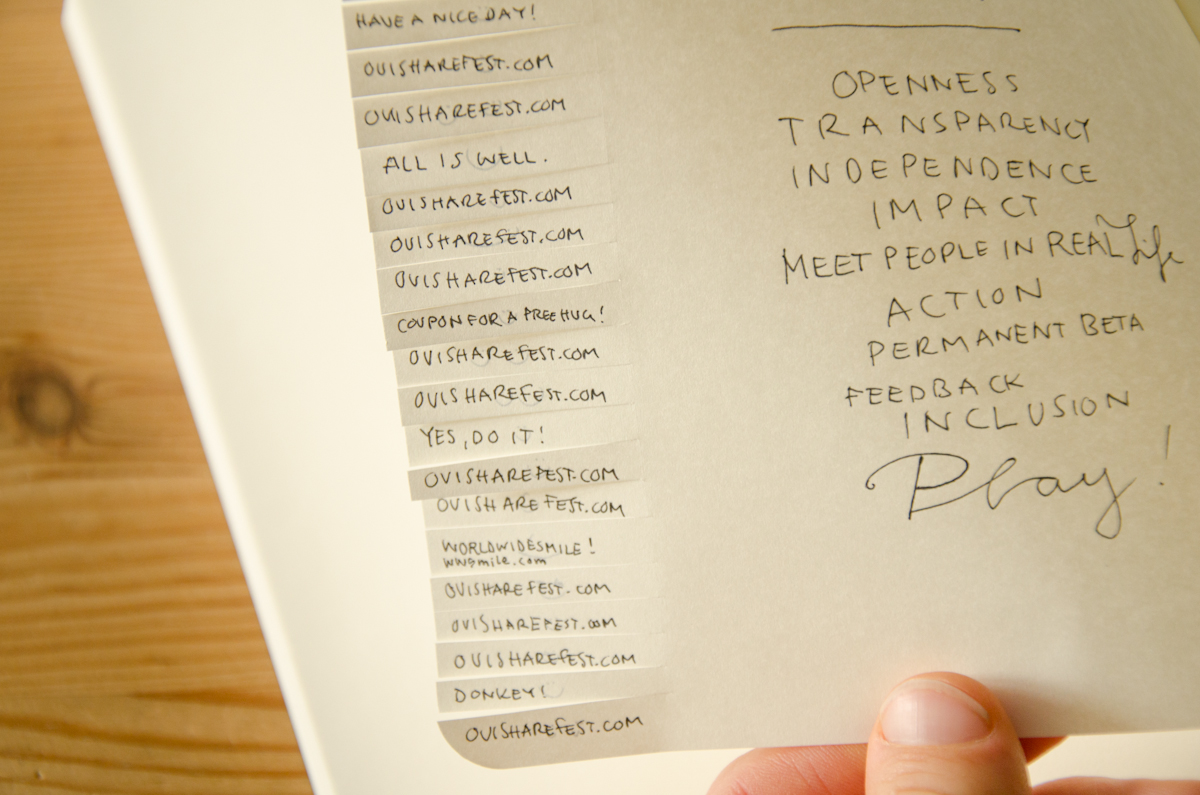 HAVE A NICE DAY!
OUISHAREFEST.COM
OUISHAREFEST.COM
ALL IS WELL.
OUISHAREFEST.COM
OUISHAREFEST.COM
OUISHAREFEST.COM
COUPON FOR A FREE HUG!
OUISHAREFEST.COM
OUISHAREFEST.COM
YES, DO IT!
OUISHAREFEST.COM
OUISHAREFEST.COM
WORLDWIDESMILE!
wwsmile.com
OUISHAREFEST.COM
OUISHAREFEST.COM
OUISHAREFEST.COM
DONKEY!
OUISHAREFEST.COM
OPENNESS
TRANSPARENCY
INDEPENDENCE
IMPACT
MEET PEOPLE IN REAL Life
ACTION
PERMANENT BETA
FEEDBACK
INCLUSION
Play!